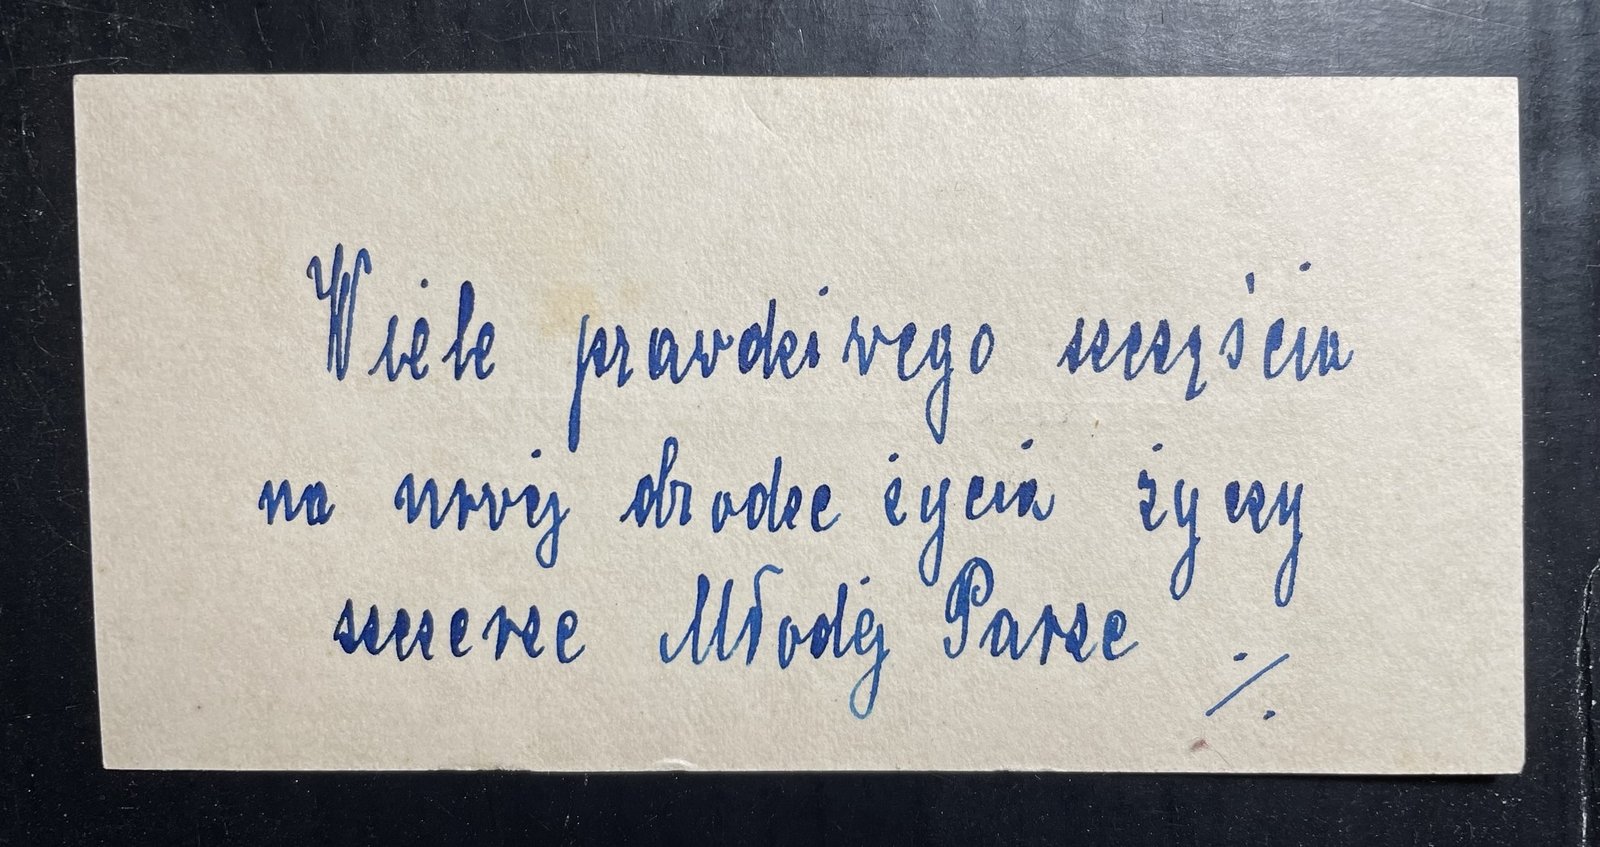 Wiele prawdziwego szczęścia
na nowej drodze życia życzy
szczerze Młodej Parze ./.